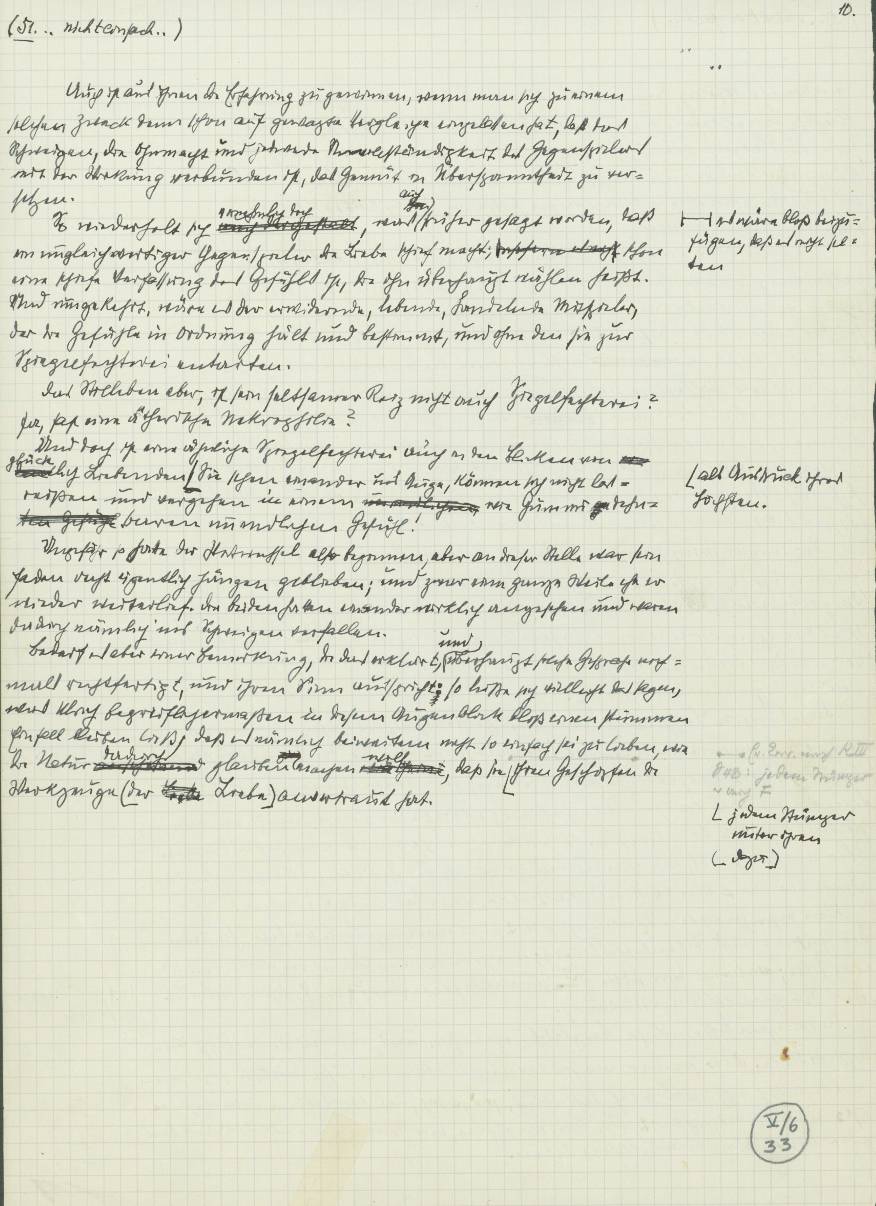 10.
(51... nicht einfach..)
Auch ist aus ihnen die Erfahrung zu gewinnen, wenn man sich zu einem
solchen Zweck denn schon auf gewagte Vergleiche eingelassen hat, daß das
Schweigen, die Ohnmacht und jedwede Unvollständigkeit des Gegenspielers
mit der Wirkung verbunden ist, das Gemüt in Überspanntheit zu ver=
setzen.
doch auch
So wiederholt sich, was früher gesagt worden, daß
ein ungleichwertiger Gegenspieler die Liebe schief macht; schon
eine schiefe Verfassung des Gefühls ist, die ihn überhaupt wählen heißt.
Und umgekehrt, wäre es der erwidernde, lebende, handelnde Mitspieler,
der die Gefühle in Ordnung hält und bestimmt, und ohne den sie zur
Spiegelfechterei entarten.
├─┤ es wäre bloß beizu=
fügen, daß es nicht sel=
ten
Das Stilleben aber, ist sein seltsamer Reiz nicht auch Spiegelfechterei?
Ja, fast eine ätherische Nekrophilie?
Und doch ist eine ähnliche Spiegelfechterei auch in den Blicken von
glücklich Liebenden [ Sie sehen einander ins Auge, können sich nicht los=
reißen und vergehen in einem wie Gummi dehn=
baren unendlichen Gefühl!
[ als Ausdruck ihres
Höchsten.
Ungefähr so hatte der Notwechsel also begonnen, aber an dieser Stelle war sein
Faden recht eigentlich hängen geblieben; und zwar eine ganze Weile ehe er
wieder weiterlief. Die beiden hatten einander wirklich angesehen und waren
dadurch nämlich ins Schweigen verfallen.
Bedarf es aber einer Bemerkung, die das erklärt, und überhaupt solche Gespräche noch=
mals rechtfertigt, und ihren Sinn ausspricht: so ließe sich vielleicht das sagen,
was Ulrich begreiflicherweise in diesem Augenblick bloß einen stummen
Einfall bleiben ließ, daß es nämlich beiweitem nicht so einfach sei zu lieben, wie
die Natur dadurch glauben machen will, daß sie [ ihren Geschöpfen die
Werkzeuge (der Liebe) anvertraut hat.
[ jedem Stümper
unter ihren
([ dazu)
V/6
33